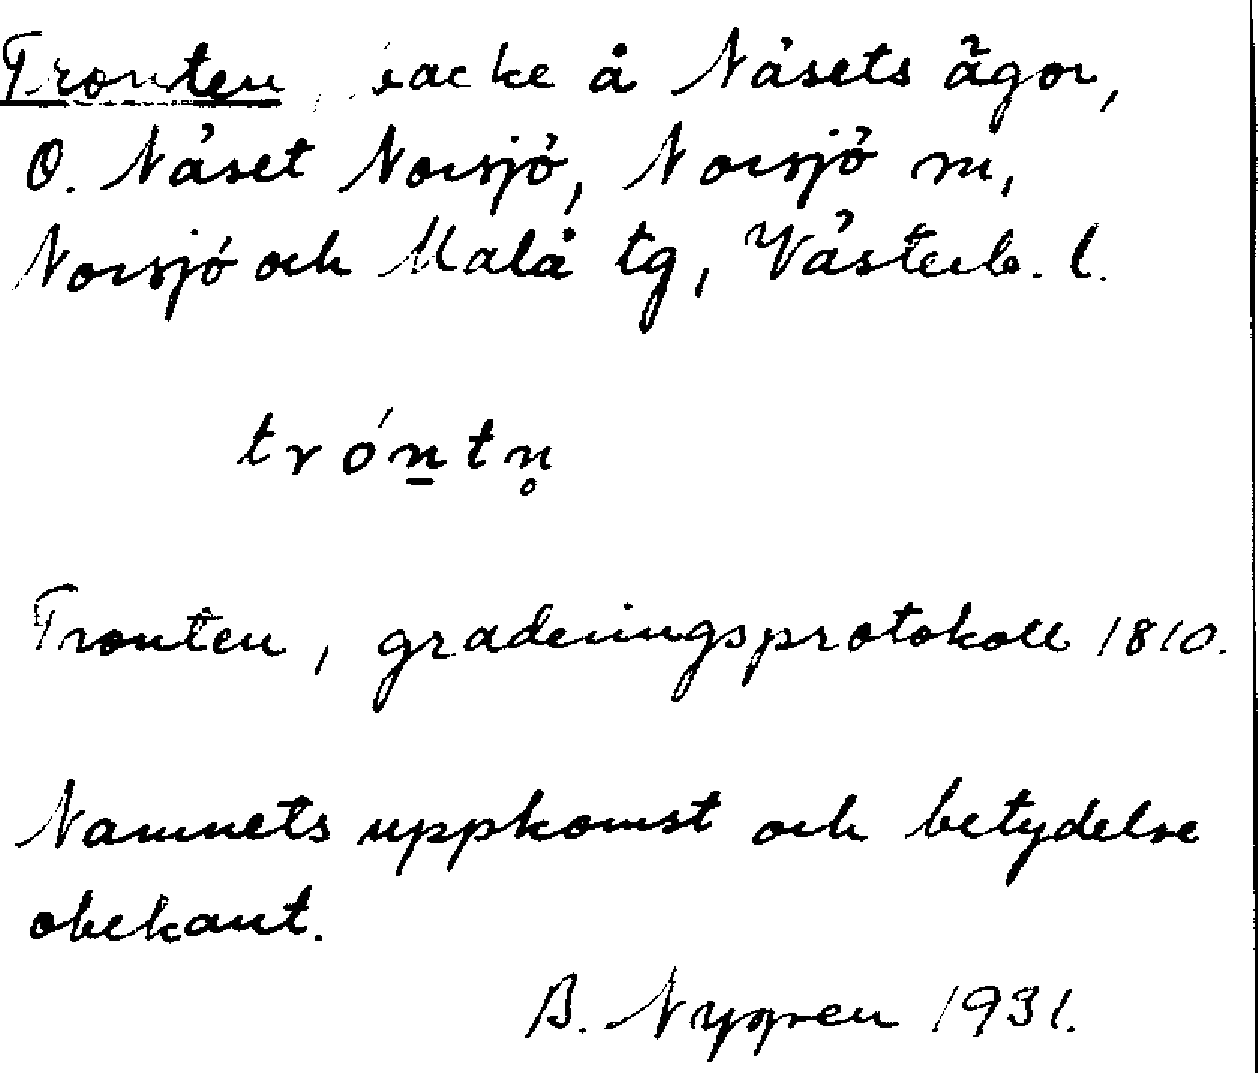 Tronten, backe å Näsets ägor,
O. Näset Norsjö, Norsjö sn,
Norsjö och Malå tg, Västerb. l.
tróntn̥
Tronten, graderingsprotokoll 1810.
Namnets uppkomst och betydelse
obekant.
B. Nygren 1931.